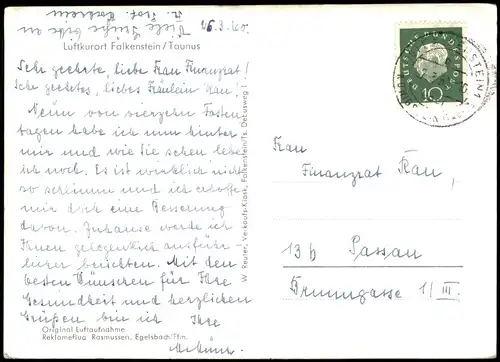 Viele Grüße bitte an
16.3.60.
Luftkurort Falkenstein/Taunus
Sehr geehrte, liebe Frau Finanzrat!
Sehr geehrtes, liebes Fräulein Rau,
Neun von vierzehn Fasten-
tagen habe ich nun hinter
mir und wie Sie sehen lebe
ich noch. Es ist wirklich nicht
so schlimm und ich erhoffe
mir doch eine Besserung
davon. Zuhause werde ich
Ihnen gelegentlich ausführ-
licher berichten. Mit den
besten Wünschen für Ihre
Gesundheit und herzlichen
Grüßen bin ich Ihre
Original Luftaufnahme
Reklameflug Rasmussen, Egelsbach/Ffm.
W. Reuter, Verkaufs-Kiosk, Falkenstein/Ts. Debusweg 1
DEUTSCHE BUNDESPOST
10
Frau
Finanzrat Rau,
13b Passau
Brunngasse 1/III.